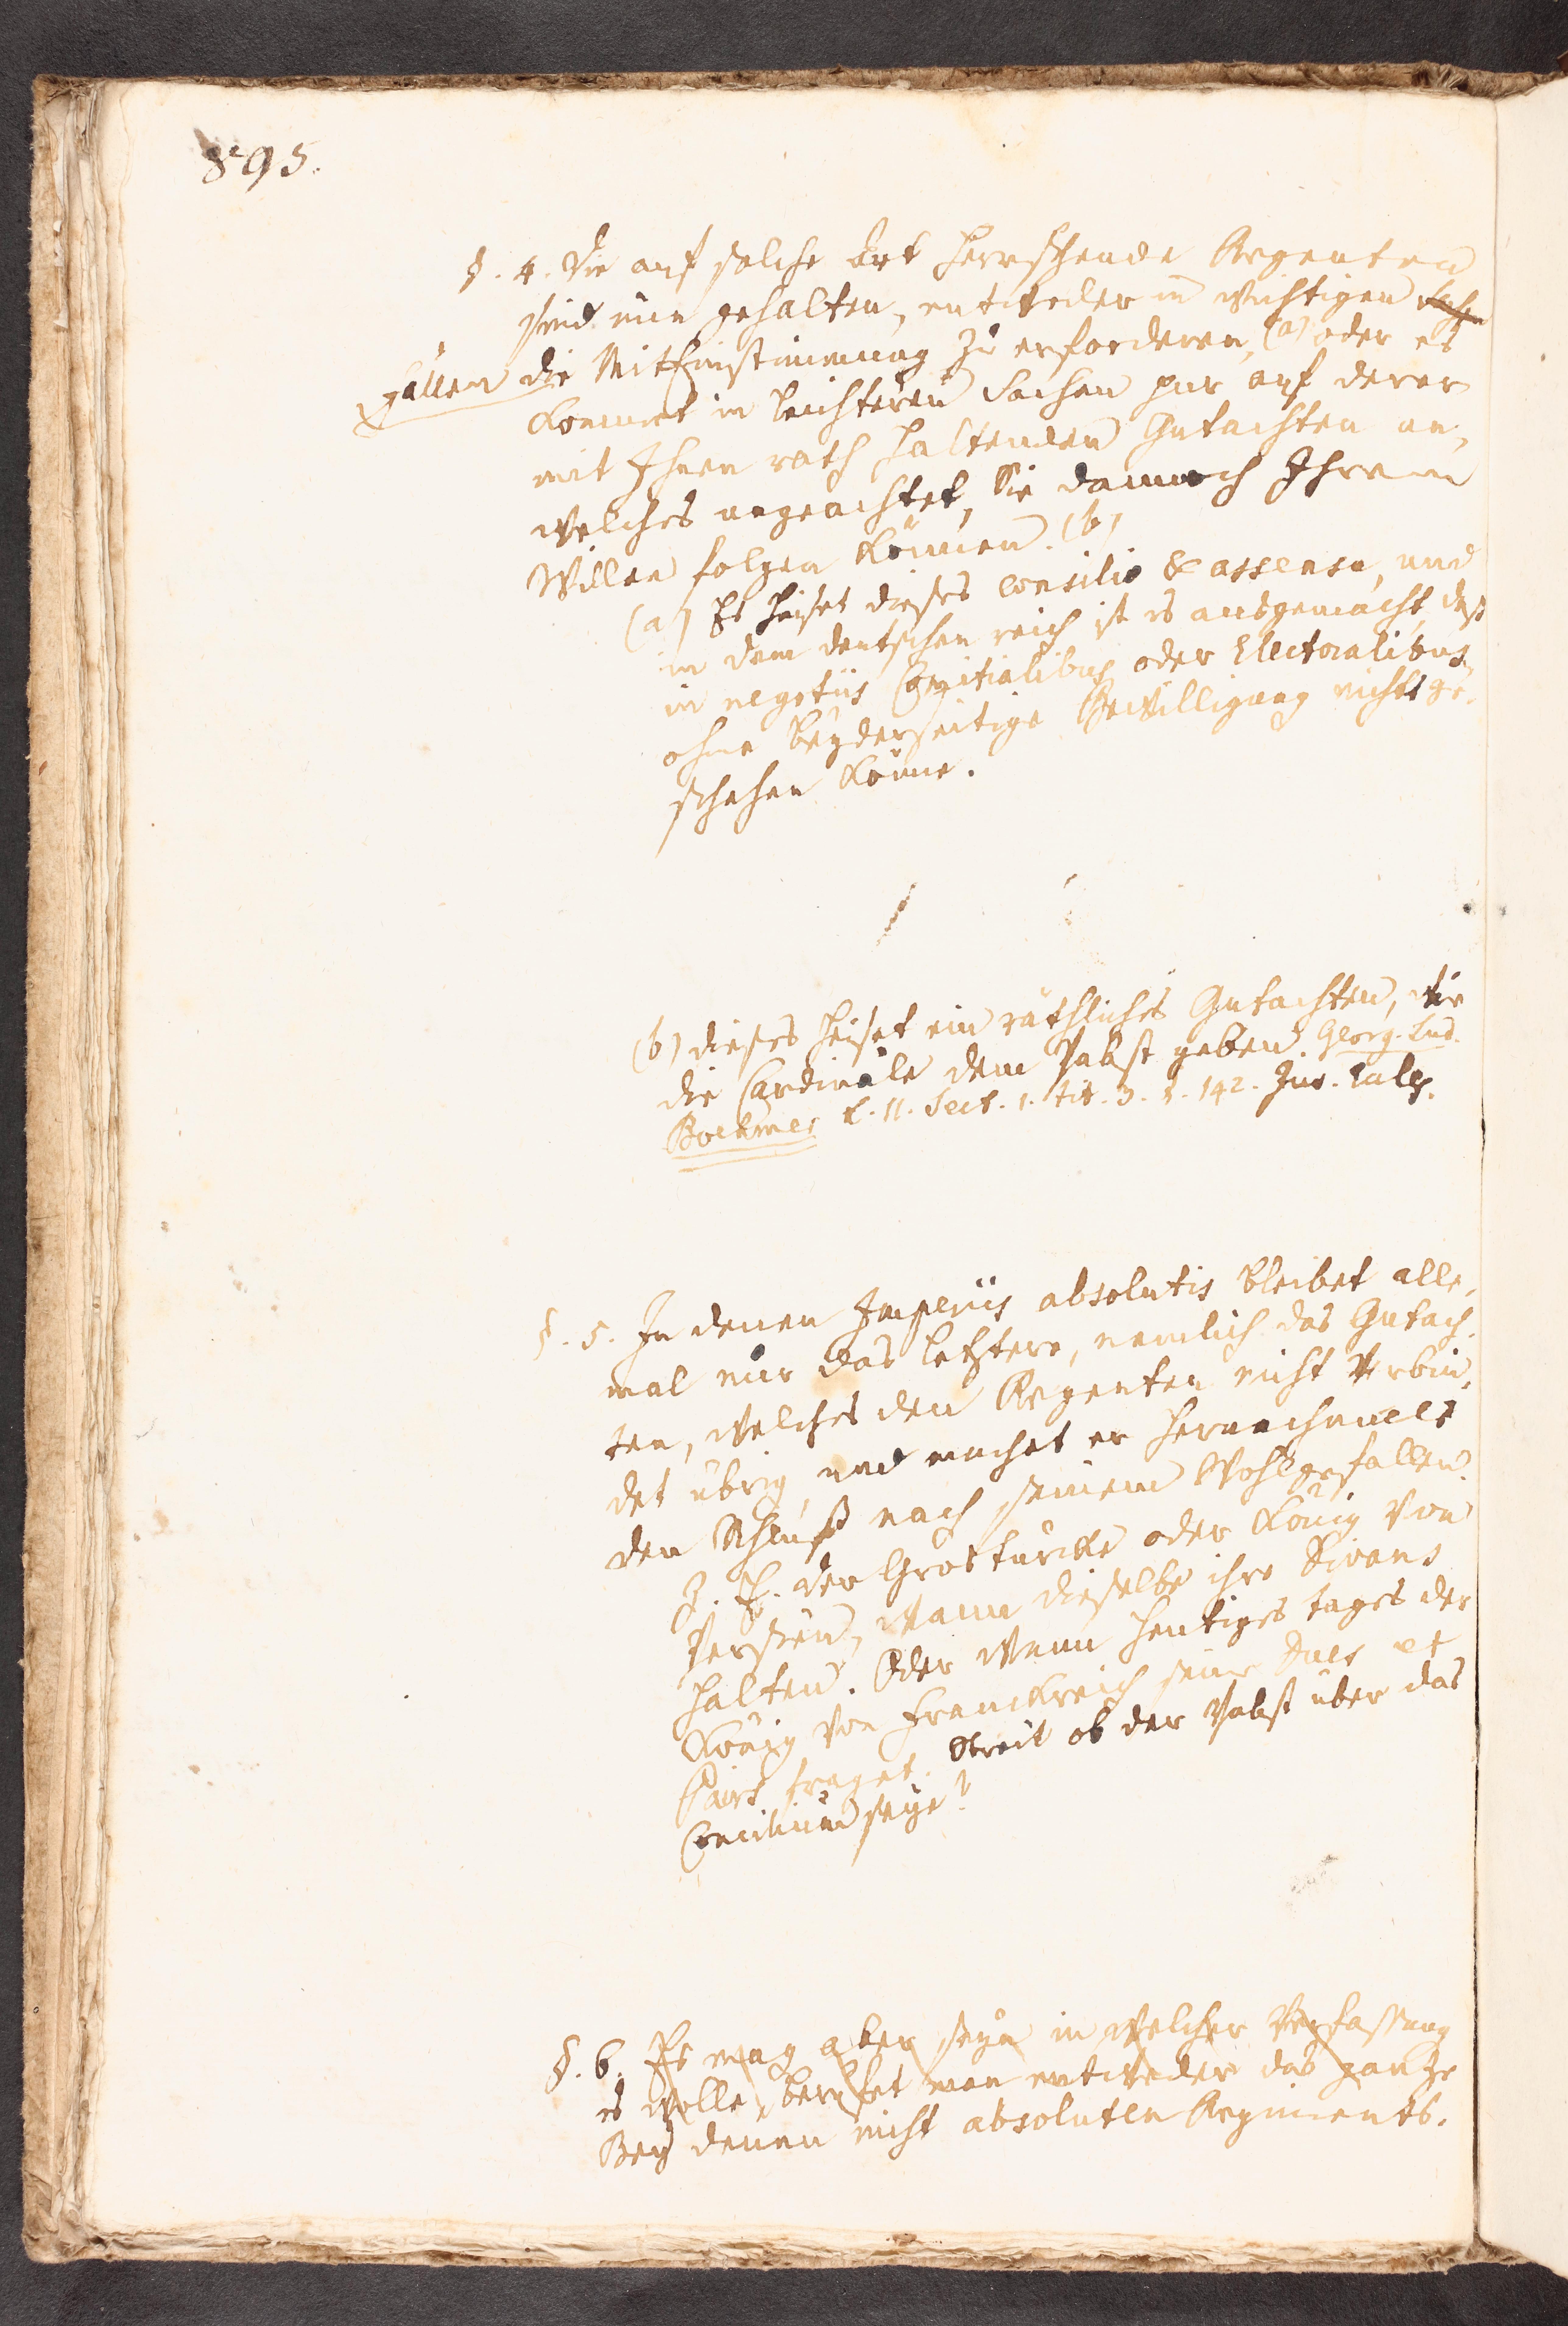 895.
§. 4. Die auf solche Art herrschende Regenten
seind nun gehalten, entweder in wichtigen
Fällen die Miteinstimmung zu erforderen, (a) oder es
kommet in leichteren Sachen nur auf derer
mit Ihnen rath haltenden Gutachten an,
welches ungeachtet, Sie dannoch Ihrem
Willen folgen können. (b)
(a) Es heiset dieses consilio & assensu, und
in dem deutschen reich ist es ausgemacht, daß
in negotiis Comitialibus oder Electoralibus
ohne beyderseitige Bewilligung nichts ge-
schehen könne.
(b) dieses heiset ein räthliches Gutachten, wie
die Cardinäle dem Pabst geben. Georg. Lud.
Boehmer L. II. Sect. 1. tit. 3. §. 142. Jur. Eccles.
§. 5. In denen Imperiis absolutis bleibet alle-
mal nur das letztere, nemlich das Gutach-
ten, welches den Regenten nicht verbin-
det übrig, und machet er hernachmals
den Schluß nach seinem Wohlgefallen.
Z. E. der Grosturcke oder König von
Persien, wann dieselbe ihre Divans
halten. Oder wenn heutiges tages der
König von Franckreich seine Ducs et
Pairs fraget. Streit ob der Pabst über das
Concilium seye?
§. 6. Es mag aber seyn in welcher Verfassung
es wolle, berufet man entweder das ganze
Bey denen nicht absoluten Regiments-